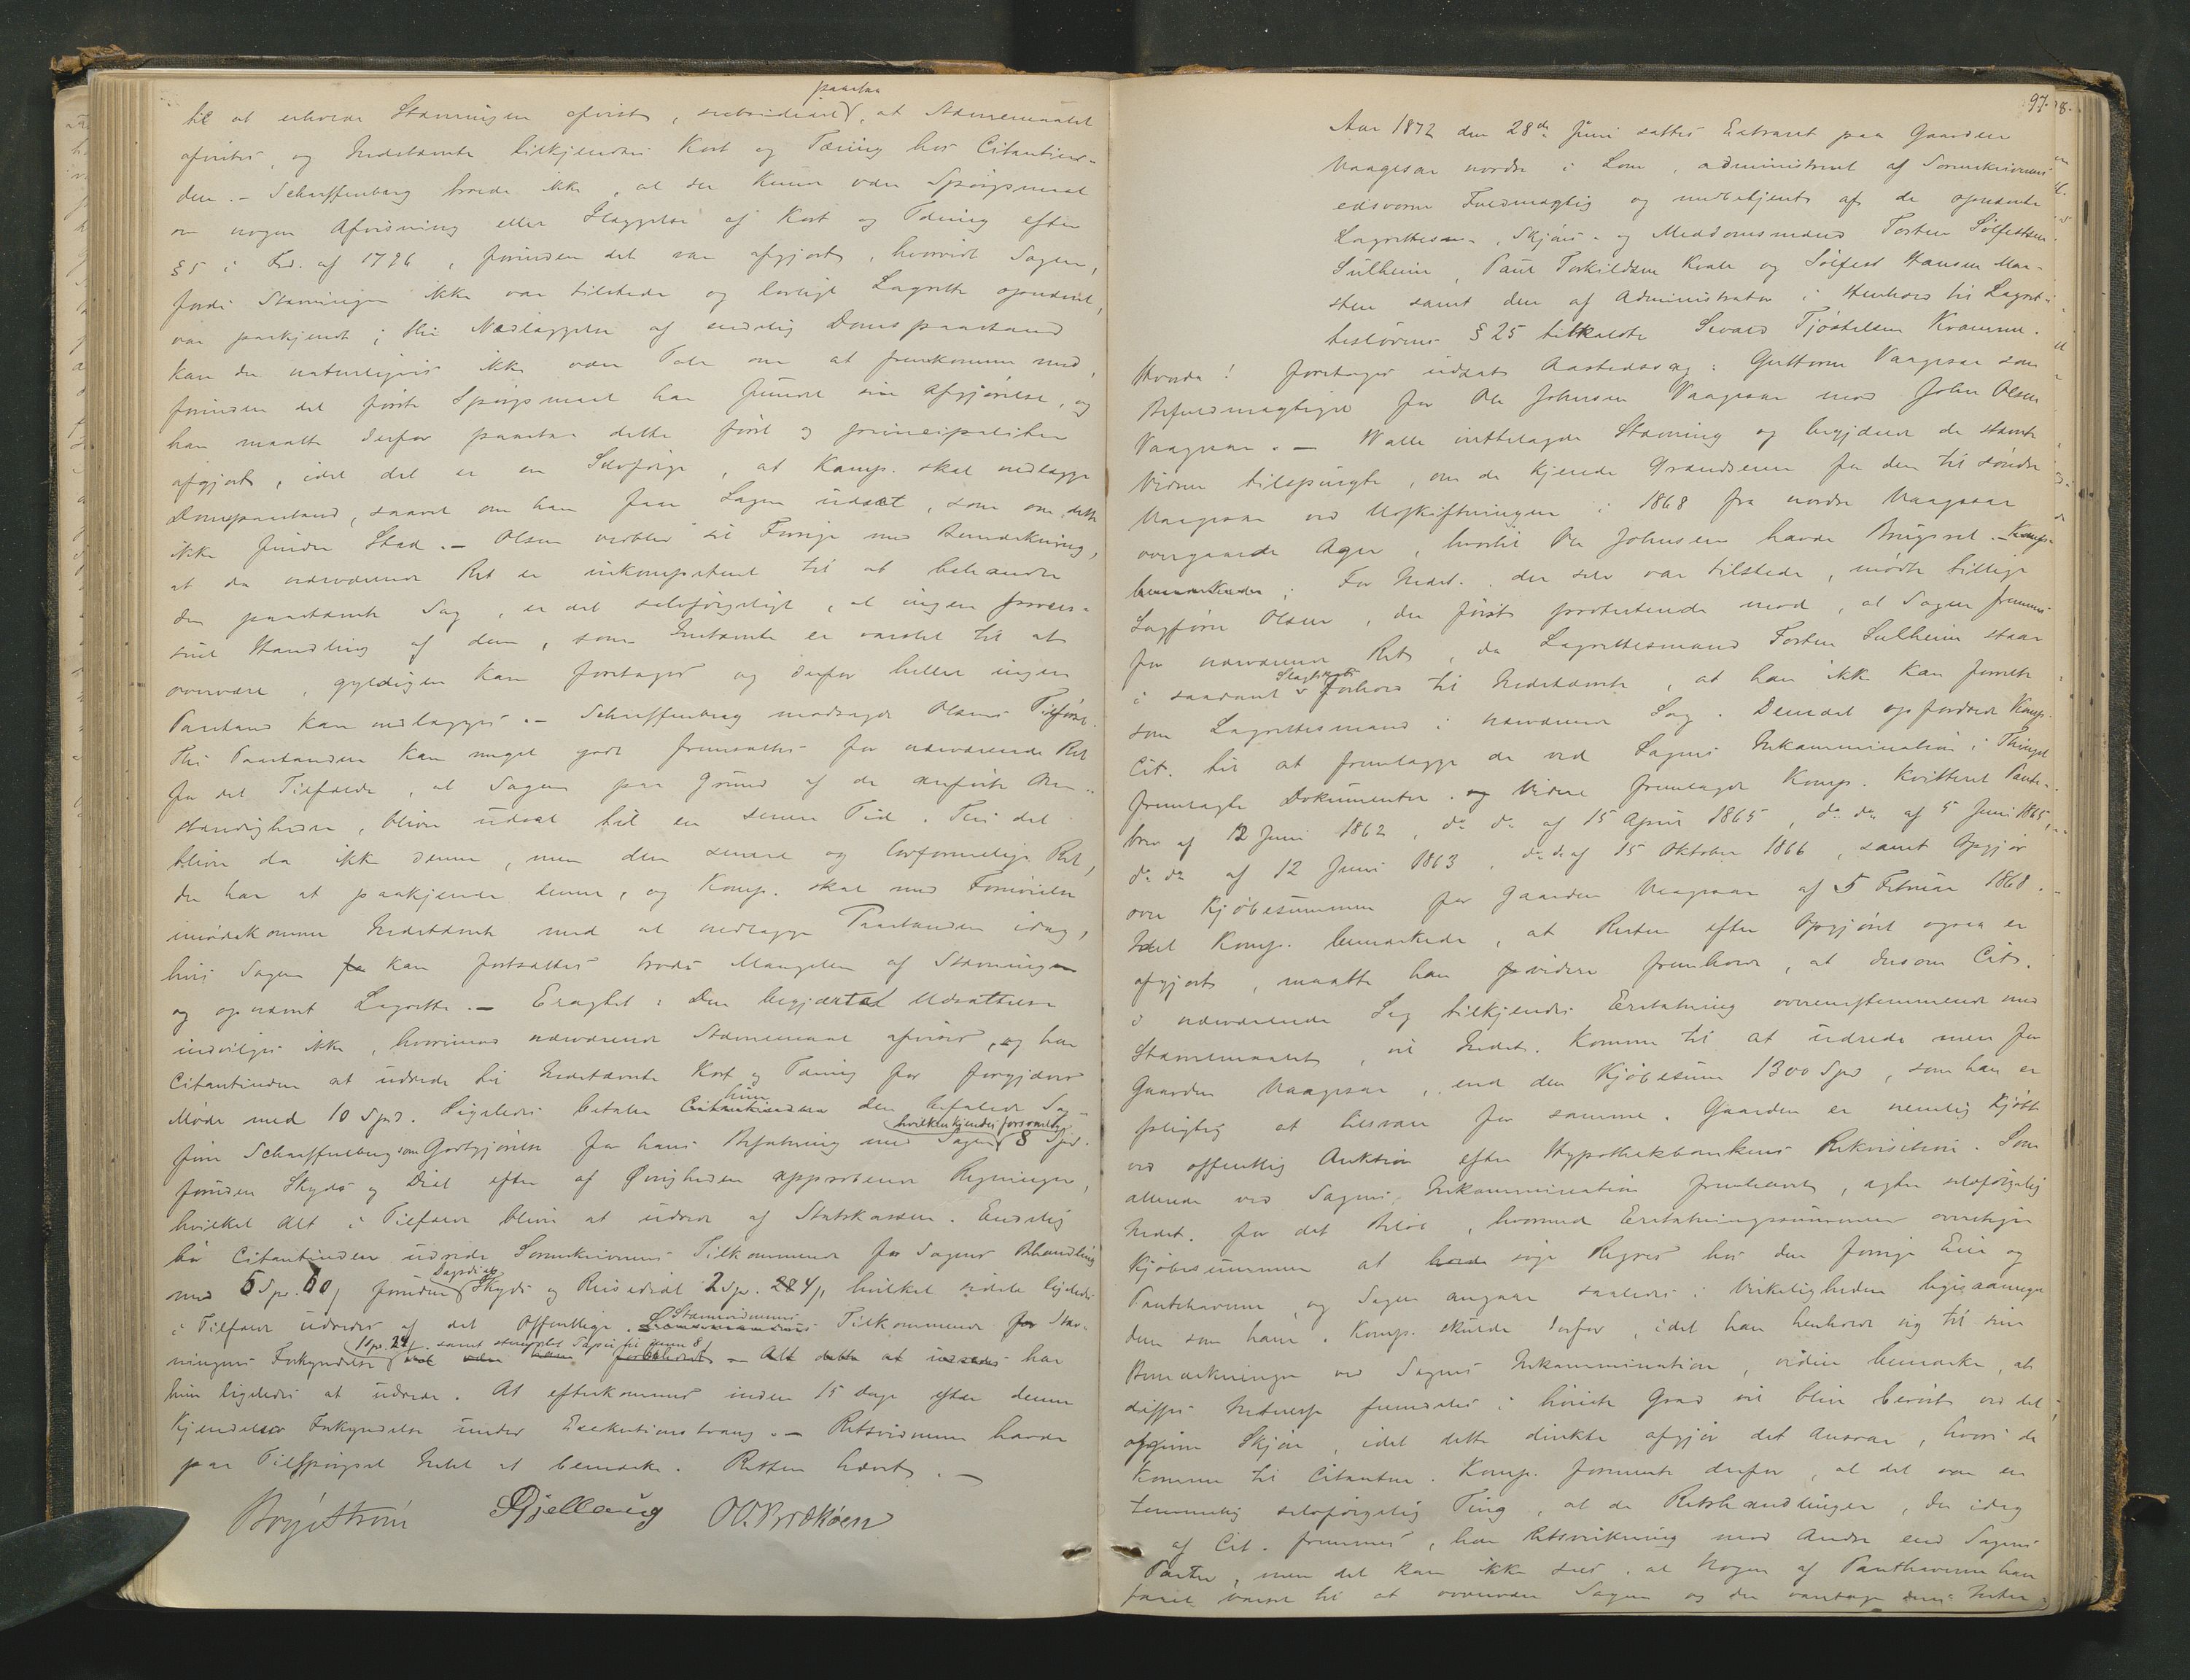 paastaa
til at erholde Stævningen afvist, subsidiært, at Stævnemaalet
afvistes, og Indstævnte tilkjendes Kost og Tæring hos Citantin-
den. - Scharffenberg troede ikke, at der kunde være Spørgsmaal
om nogen Afvisning eller Ilæggelse af Kost og Tæring efter
§ 5 i Frd. af 1796, forinden det var afgjort, hvorvidt Sagen,
fordi Stævningen ikke var tilstede og lovligt Lagrette opnævnt,
var paakjendt; thi Nedlæggelse af endelig Domspaastand
kan der naturligvis ikke være Tale om at fremkomme med,
forinden det første Spørgsmaal har fundet sin Afgjørelse, og
han maatte derfor paastaa dette først og principaliter
afgjort, idet det er en Selvfølge, at Komp. skal nedlægge
Domspaastand, saavel om han faar Sagen udsat, som om dette
ikke finder Sted. - Olsen vedblev sit Forrige med Bemærkning,
at da nærværende Ret er inkompetent til at behandle
den paastævnte Sag, er det selvfølgeligt, at ingen proces-
suel Handling af den, som Indstævnte er varslet til at
overvære, gyldigen kan foretages og derfor heller ingen
Paastand kan nedlægges. - Scharffenberg modsagde Olsens Tilførsel.
Thi Paastanden kan meget godt fremsættes for nærværende Ret
for det Tilfælde, at Sagen paa Grund af de anførte Om-
stændigheder, bliver udsat til en senere Tid. Thi det
bliver da ikke denne, men den senere og lovformelige Ret,
der har at paakjende denne, og Komp. skal med Fornøielse
imødekomme Indstævnte med at nedlægge Paastanden idag,
hvis Sagen kan fortsættes trods Mangelen af Stævningen
og opnævnt Lagrette. - Eragtet: Den begjærte Udsættelse
indvilges ikke, hvorimod nærværende Stævnemaal afvises, og har
Citantinden at udrede til Indstævnte Kost og Tæring for forgjæves
Møde med 10 Spd. Ligeledes betaler hun den befalede Sag-
hvilken kjendes forsvarlig
fører Scharffenberg som Godtgjørelse for hans Befatning med Sagen 8 Spd.
foruden Skyds og Diæt efter af Øvrigheden approberede Regninger,
hvilket Alt i Tilfælde bliver at udrede af Statskassen. Endelig
bør Citantinden udrede Sorenskriverens Tilkommende for Sagens Behandling
Dagsdiæt
med 5 Spd. 60, foruden Skyds og Reisediæt 2 Spd. 4, hvilket sidste ligeledes
i Tilfælde udredes af det Offentlige. Stævnevidnernes Tilkommende for Stæv-
1 Spd. 24 samt stemplet Papir til 8
ningens Forkyndelse har
hun ligeledes at udrede. At efterkommes inden 15 Dage efter denne
Kjendelses Forkyndelse under Exekutions Tvang. - Retsvidnerne havde
paa Tilspørgsel Intet at bemærke. Retten hævet. -
Borgestrøm Gjellaug O.O. Brikøen
97.
Aar 1872 den 28de Juni sattes Extraret paa Gaarden
Vaagesar nordre i Lom, administreret af Sorenskriverens
edsvorne Fuldmægtig og medbetjent af de opnævnte
Lagrettes-, Skjøns- og Meddomsmænd Tosten Sølfestsen
Sulheim, Paul Torkildsen Kvale og Sølfest Hansen Mar-
sten samt den af Administrator i Henhold til Lagret-
teslovens § 25 tilkaldte Sevald Tjøstelsen Kramme.
Hvorda! foretages udsat Aastedssag: Guttorm Vaagesar som
Befuldmægtiget for Ole Johnsen Vaagesar mod John Olsen
Vaagesar. - Walle irettelagde Stævning og begjærede de stævnte
Vidner tilspurgte, om de kjende Grændserne for den til søndre
Vaagesar ved Udskiftningen i 1868 fra nordre Vaagesar
overgaaede Ager, hvortil Ole Johnsen havde Brugsret. - Komp.
bemærkede; For Indst. der selv var tilstede, mødte tillige
Sagfører Olsen, der først protesterede mod, at Sagen fremmes
for nærværende Ret, da Lagrettesmand Tosten Sulheim staar
i saadant Slagtskabs Forhold til Indstævnte, at han ikke kan forrette
som Lagrettesmand i nærværende Sag. Dernæst opfordrede Komp.
Cit. til at fremlægge de ved Sagens Inkammination i Thinget
fremlagte Dokumenter. Videre fremlagde Komp. kvitteret Pante-
brev af 12 Juni 1862, do do af 15 April 1865, do do af 5 Juni 1865,
do do af 12 Juni 1863, do do af 15 Oktober 1866, samt Opgjør
over Kjøbesummen for Gaarden Vaagesar af 5 Februar 1868.
Idet Komp. bemærkede, at Resten efter Opgjøret ogsaa er
afgjort, maatte han videre fremholde, at dersom Cit.
i nærværende Sag tilkjendes Erstatning overensstemmende med
Stævnemaalet, vil Indst. komme til at udrede mere for
Gaarden Vaagesar, end den Kjøbesum 1300 Spd, som han er
pligtig at tilsvare for samme. Gaarden er nemlig kjøbt
ved offentlig Auktion efter Hypothekbankens Rekvisition. Som
allerede ved Sagens Inkammination fremhævet, agter selvfølgelig
Indst. for det Beløb, hvormed Erstatningssummen overstiger
Kjøbesummen at søge Regres hos den forrige Eier og
Panthaverne, og Sagen angaar saaledes i Virkeligheden ligesaameget
dem som ham. Komp. skulde derfor, idet han henholdt sig til sine
Bemærkninger ved Sagens Inkammination, videre bemærke, at
disses Interesse fremdeles i høieste Grad vil blive berørt ved det
afgivne Skjøn, idet dette direkte afgjør det Ansvar, hvori de
komme til Citanten. Komp. formente derfor, at det var en
temmelig selvfølgelig Ting, at de Retshandlinger, der idag
af Cit. fremmes, har Retsvirkning mod Andre end Sagens
Parter, men det kan ikke sees, at Nogen af Panthaverne har
faaet Varsel til at overvære Sagen og der varetage deres Inter-